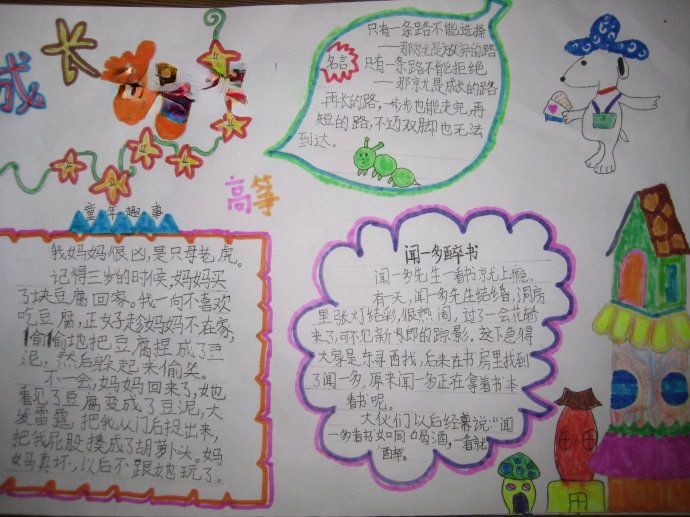 成长
名言
只有一条路不能选择
——那就是放弃的路
只有一条路不能拒绝
——那就是成长的路
再长的路,一步步也能走完,再
短的路,不迈双脚也无法
到达。
高筝
童年趣事
我妈妈很凶,是只母老虎。
记得三岁的时候,妈妈买
了块豆腐回家。我一向不喜欢
吃豆腐,正好趁妈妈不在家,
偷偷地把豆腐捏成了豆
泥,然后躲起来偷笑。
不一会,妈妈回来了,她
看见了豆腐变成了豆泥,大
发雷霆,把我从门后捉出来,
把我屁股揍成了胡萝卜头。妈
妈真坏,以后不跟她玩了。
闻一多醉书
闻一多先生一看书就上瘾,
有一天,闻一多先生结婚,洞房
里张灯结彩,很热闹,过了一会花轿
来了,可不见新郎的踪影。这下急得
大家是东寻西找,后来在书房里找到
了闻一多,原来闻一多正在拿着书本
看书呢。
大伙们以后经常说:“闻
一多看书如同喝酒,一看就
醉。